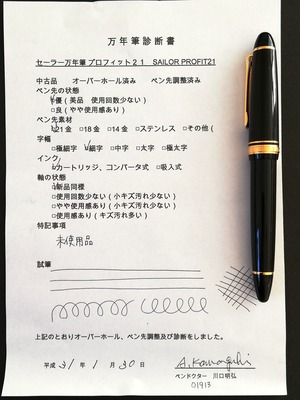 万年筆診断書
セーラー万年筆プロフィット21 SAILOR PROFIT21
中古品 オーバーホール済み ペン先調整済み
ペン先の状態
□優(美品 使用回数少ない)
□良(やや使用感あり)
ペン先素材
□21金 □18金 □14金 □ステンレス □その他(
字幅
□極細字 □細字 □中字 □太字 □極太字
インク
□カートリッジ、コンバータ式 □吸入式
軸の状態
□新品同様
□使用回数少ない(小キズ汚れ少ない)
□やや使用感あり(小キズ汚れ少ない)
□使用感あり(キズ汚れ多い)
特記事項
未使用品
試筆
上記のとおりオーバーホール、ペン先調整及び診断をしました。
平成 31年 1月 30日 A.Kawaguchi
ペンドクター 川口明弘
01913